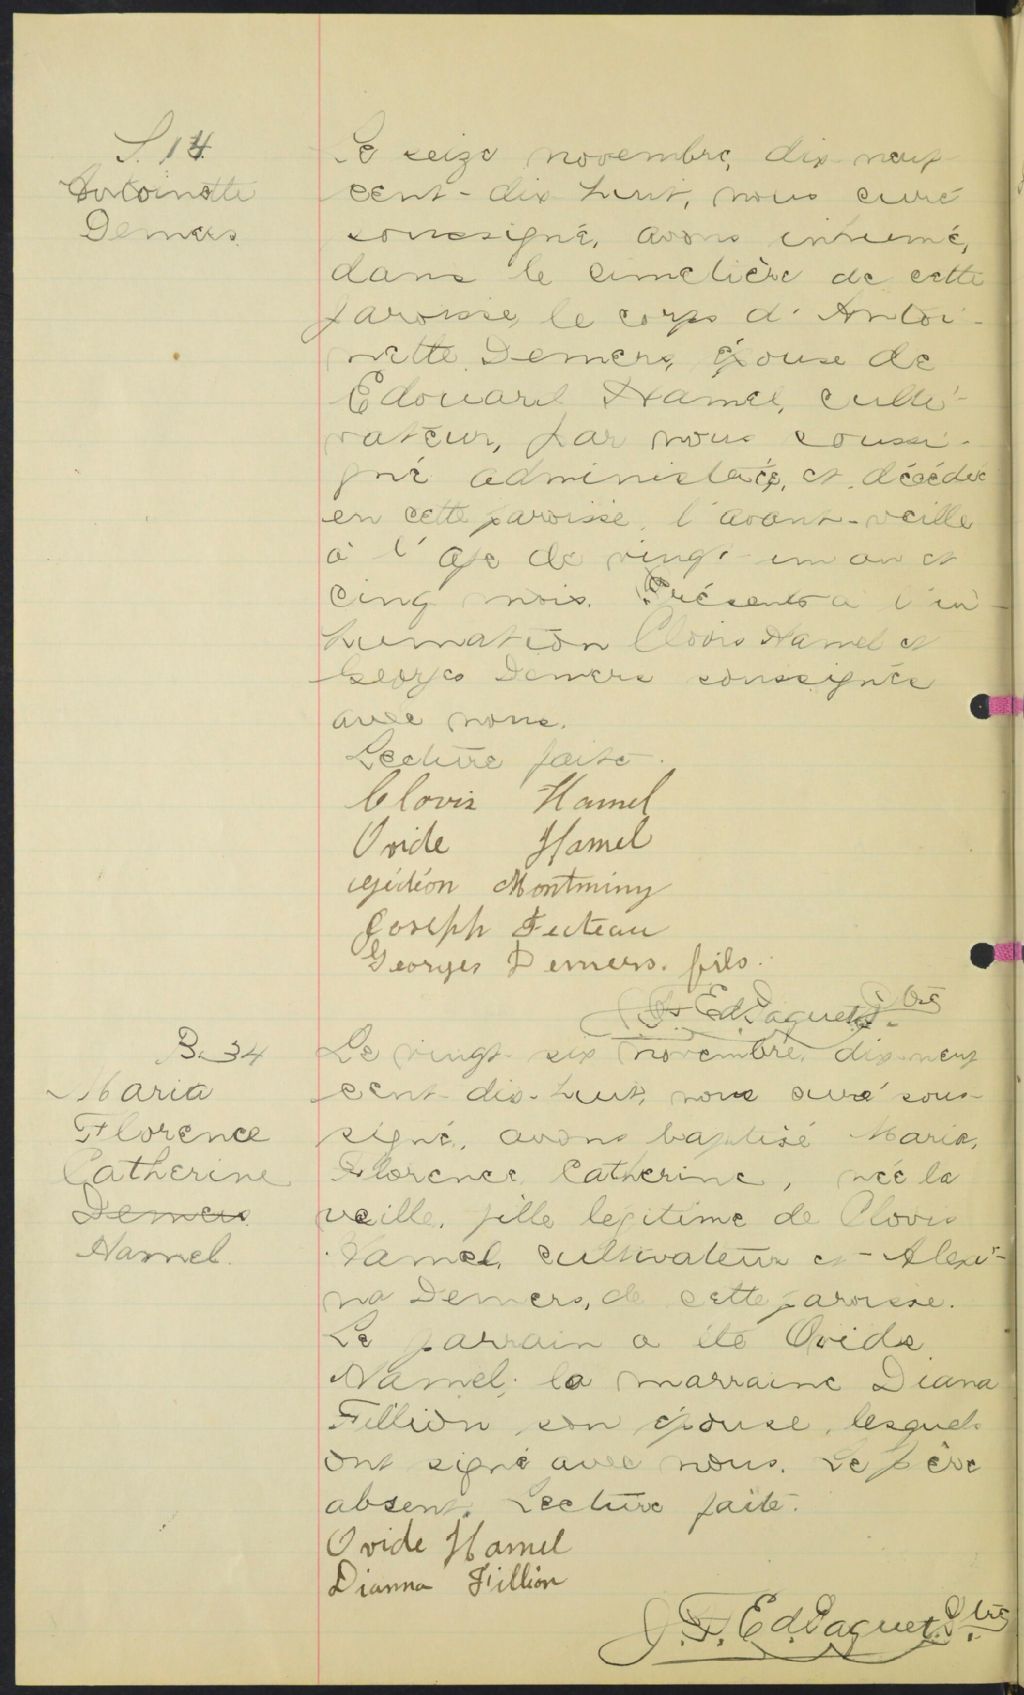 S. 14
Antoinette
Demers
Le seize novembre, dix-neuf
cent-dix huit, nous curé
soussigné, avons inhumé,
dans le cimetière de cette
paroisse, le corps d'Antoi-
nette Demers, épouse de
Edouard Hamel, culti-
vateur, par nous soussi-
gné administrée, et décédée
en cette paroisse, l'avant-veille
à l'age de vingt-un an et
cinq mois. Présents à l'in-
humation Clovis Hamel et
Georges Demers soussignés
avec nous.
Lecture faite.
Clovis Hamel
Ovide Hamel
Gédéon Montminy
Joseph Fecteau
Georges Demers. fils.
J. F. Ed. Paquet, Ptre
B. 34
Maria
Florence
Catherine
Demers
Hamel.
Le vingt-six novembre, dix-neuf
cent-dix-huit, nous curé sous-
signé, avons baptisé Marie,
Florence, Catherine, née la
veille, fille légitime de Clovis
Hamel, cultivateur et Alexi-
na Demers, de cette paroisse.
Le parrain a été Ovide
Hamel; la marraine Diana
Fillion son épouse, lesquels
ont signé avec nous. Le père
absent. Lecture faite.
Ovide Hamel
Dianna Fillion
J. F. Ed. Paquet. Ptre